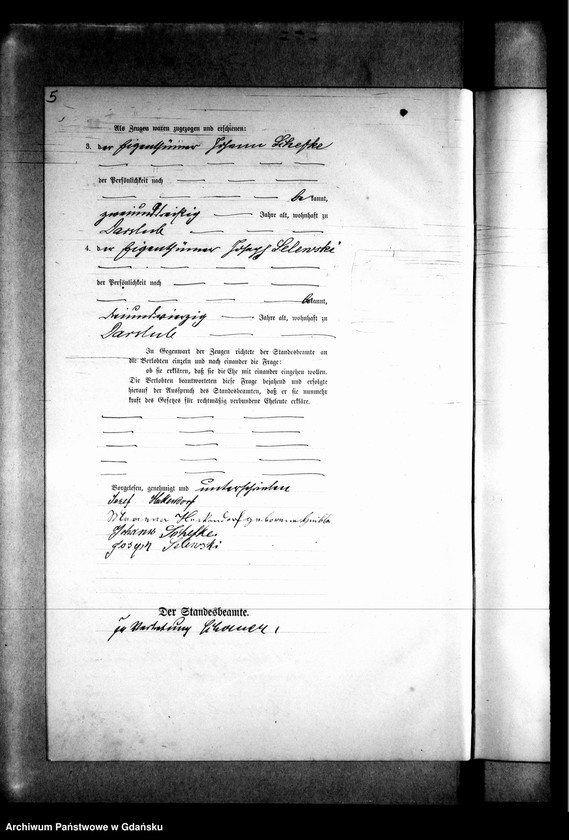 5
Als Zeugen waren zugezogen und erschienen:
3. der Eigenthümer Johann Schefke
der Persönlichkeit nach
be kannt,
zweiunddreißig Jahre alt, wohnhaft zu
Darslub
4. der Eigenthümer Joseph Selewski
der Persönlichkeit nach
be kannt,
Jahre alt, wohnhaft zu
Darslub
In Gegenwart der Zeugen richtete der Standesbeamte an
die Verlobten einzeln und nach einander die Frage:
ob sie erklären, daß sie die Ehe mit einander eingehen wollen.
Die Verlobten beantworteten diese Frage bejahend und erfolgte
hierauf der Ausspruch des Standesbeamten, daß er sie nunmehr
kraft des Gesetzes für rechtmäßig verbundene Eheleute erkläre.
Vorgelesen, genehmigt und unterschrieben
Jozef
Hackendorf geborene
Johann Schefke.
Joseph Selewski
Der Standesbeamte.
In Vertretung
Archiwum Państwowe w Gdańsku